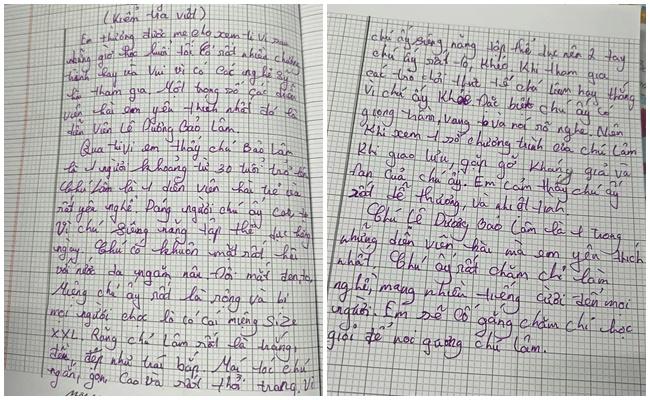 (Kiểm tra viết)
Em thường được mẹ cho xem ti vi sau
những giờ học buổi tối có rất nhiều chương
trình hay và vui vì có các nghệ sỹ
tham gia. Một trong số các diễn
viên hài em yêu thích nhất đó là
diễn viên Lê Dương Bảo Lâm.
Qua ti vi em thấy chú Bảo Lâm
là 1 người khoảng từ 30 tuổi trở lên
Chú Lâm là 1 diễn viên hài trẻ và
rất yêu nghề. Dáng người chú ấy cao to
vì chú siêng năng tập thể dục hằng
ngày. Chú có khuôn mặt rất hài
với nước da ngăm nâu. Đôi mắt đen, to.
Miệng chú ấy rất là rộng và bị
mọi người chọc là có cái miệng Size
XXL. Răng chú Lâm rất là trắng,
đều, đẹp như trái bắp. Mái tóc chú
ngắn, gọn. Cao và rất thời trang. Vì
chú ấy siêng năng tập thể dục nên 2 tay
chú ấy rất là khỏe. Khi tham gia
các trò chơi thử tế chú làm hay thắng
vì chú ấy khỏe. Đặc biệt chú ấy có
giọng trầm, vang và nói rõ nghe. Nên
khi xem 1 số chương trình của chú Lâm
khi giao lưu, gặp gỡ, kháng giả và
fan của chú ấy. Em cảm thấy chú ấy
rất dễ thương, và nhiệt tình.
Chú Lê Dương Bảo Lâm là 1 trong
những diễn viên hài mà em yêu thích
nhất. Chú ấy rất chăm chỉ làm
nghề, mang nhiều tiếng cười đến mọi
người. Em sẽ cố gắng chăm chỉ học
giỏi để noi gương chú Lâm.